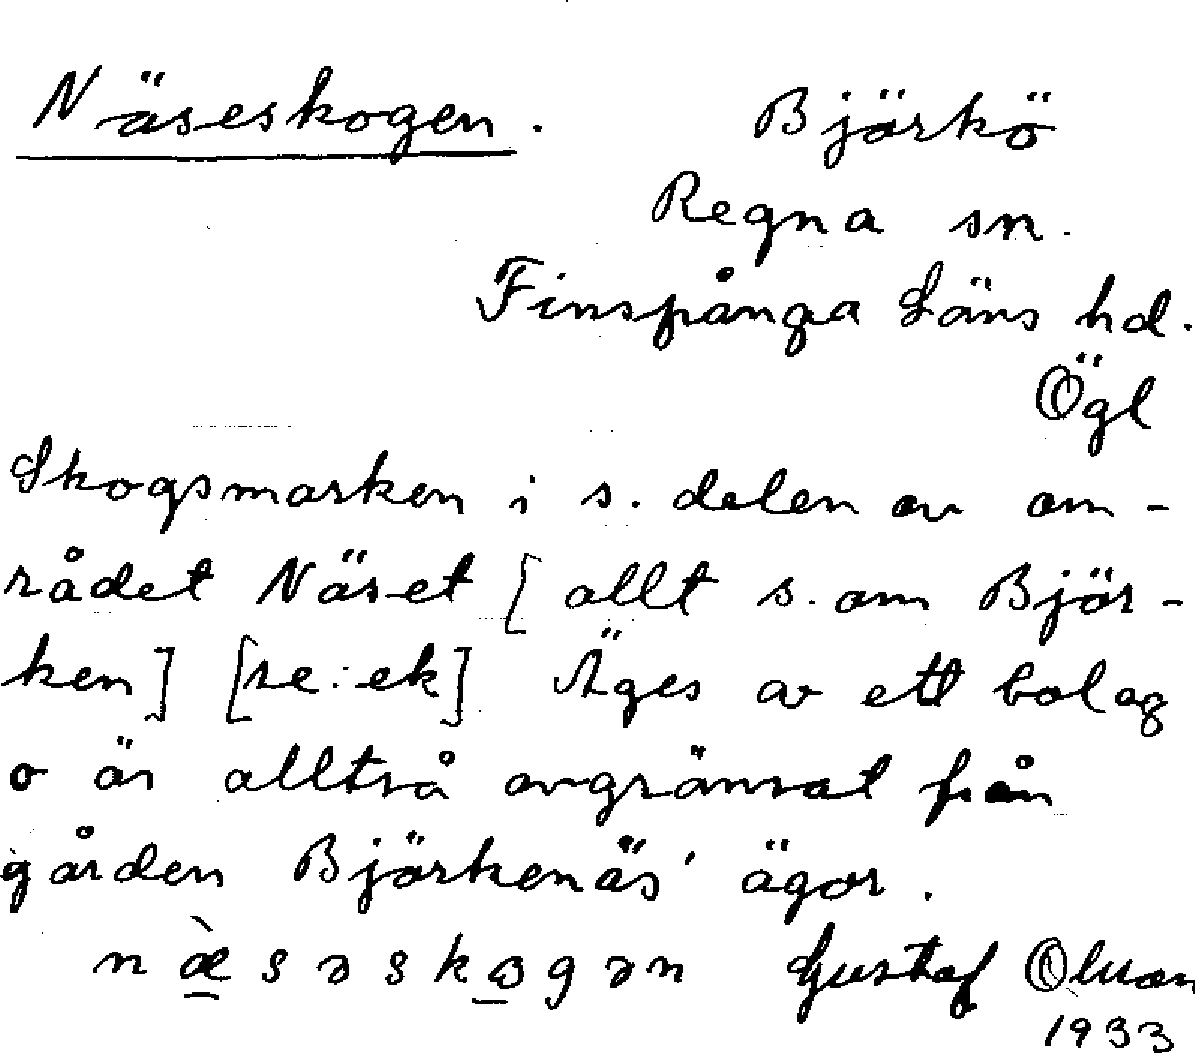 Näseskogen. Björkö
Regna sn.
Finspånga Läns hd.
Ögl
Skogsmarken i s. delen av om-
rådet Näset [allt s. om Björ-
ken] [se: ek] Äges av ett bolag
o är alltså avgränsat från
gården Björkenäs' ägor.
næ̀səskogən Gustaf Olsson
1933